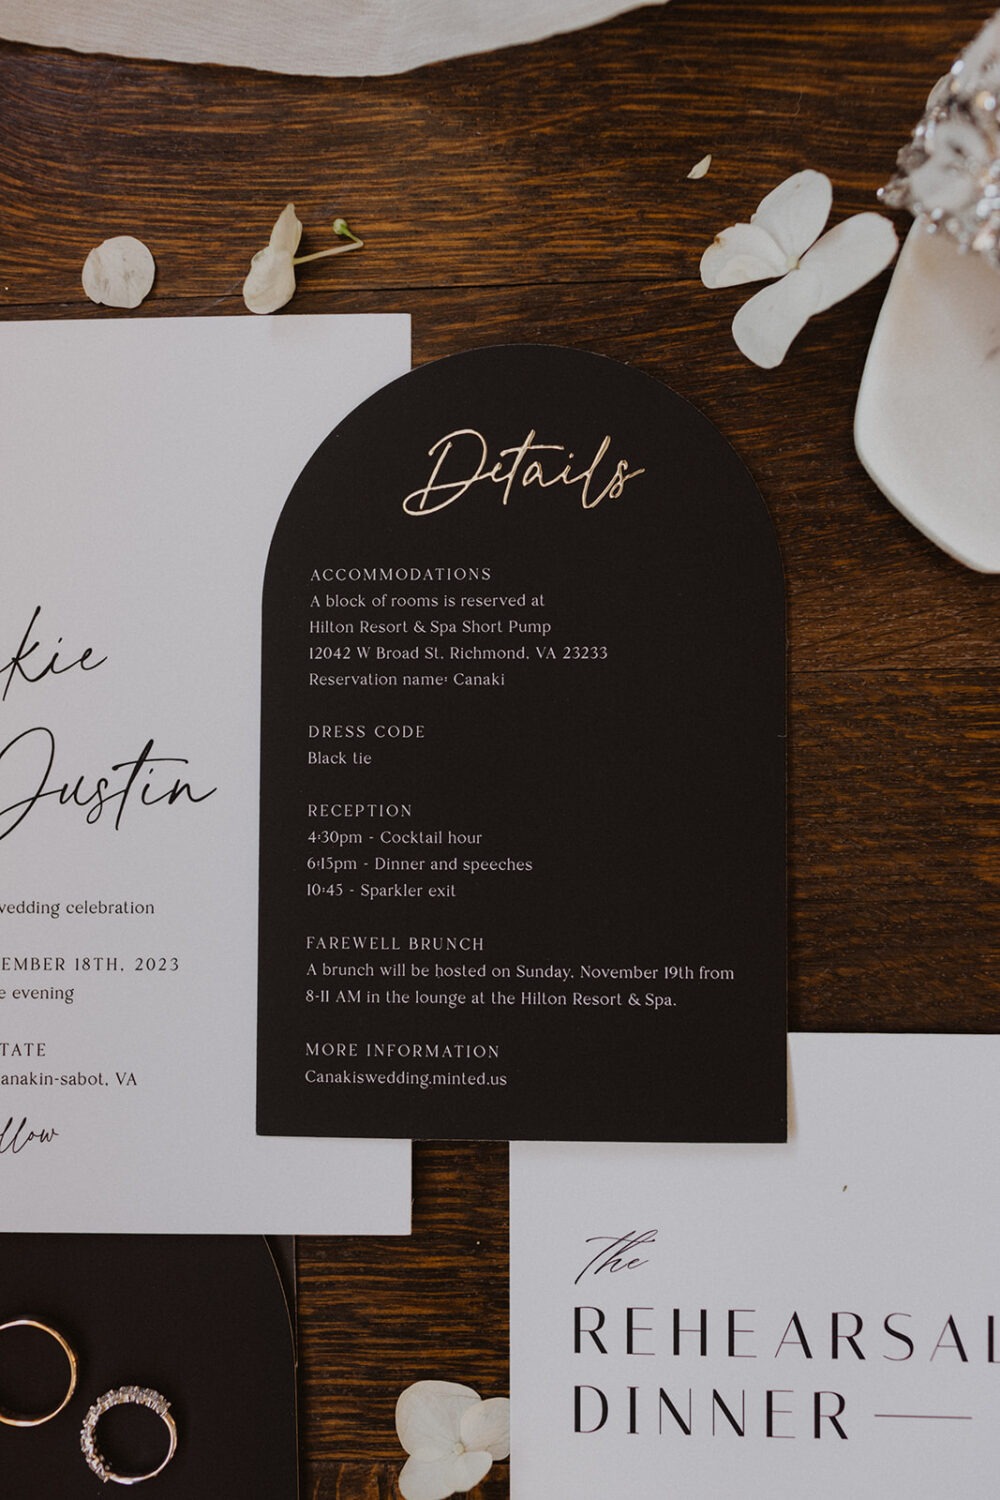 Details
ACCOMMODATIONS
A block of rooms is reserved at
Hilton Resort & Spa Short Pump
12042 W Broad St. Richmond, VA 23233
Reservation name: Canaki
DRESS CODE
Black tie
RECEPTION
4:30pm - Cocktail hour
6:15pm - Dinner and speeches
10:45 - Sparkler exit
FAREWELL BRUNCH
A brunch will be hosted on Sunday, November 19th from
8-11 AM in the lounge at the Hilton Resort & Spa.
MORE INFORMATION
Canakiswedding.minted.us
kie
Justin
wedding celebration
EMBER 18TH, 2023
e evening
TATE
anakin-sabot, VA
llow
the
REHEARSAL
DINNER